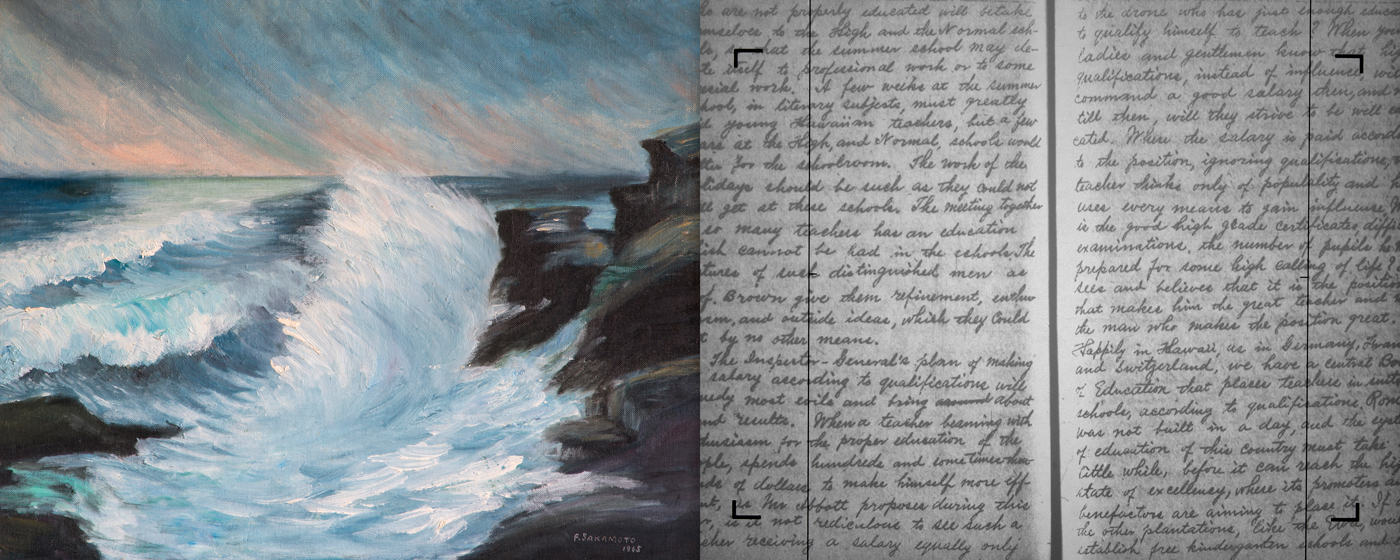 F. SAKAMOTO
1965
are not properly educated will betake
mselves to the High and the Normal sch-
that the summer school may de-
te itself to professional work or to some
work. A few weeks at the summer
hool, in literary subjects, must greatly
young Hawaiian teachers, but a few
at the High, and Normal, schools would
for the schoolroom. The work of the
lidays should be such as they could not
get at these schools. The meeting together
so many teachers has an education
ish cannot be had in the schools. The
tures of such distinguished men as
f. Brown give them refinement, enthu
sm, and outside ideas, which they could
t by no other means.
The Inspector-General's plan of making
salary according to qualifications will
medy most evils and bring about
results. When a teacher beaming with
husiasm for the proper education of the
ple, spends hundreds and sometimes
ds of dollars, to make himself more eff-
Mr Abbott proposes during this
is it not rediculous to see such a
cher receiving a salary equally only
to the drone who has just enough educa
to qualify himself to teach? When you
ladies and gentlemen know that
qualifications, instead of influence will
command a good salary then, and
till then, will they strive to be well
cated. Where the salary is paid accor
to the position, ignoring qualifications,
teacher thinks only of popularity and
uses every means to gain influence,
is the good high grade certificates,
examinations, the number of pupils he
prepared for some high calling of life?
sees and believes that it is the position
that makes him the great teacher and
the man who makes the position great.
Happily in Hawaii, as in Germany,
and Switzerland, we have a central
of Education that places teachers in
schools, according to qualifications. Rom
was not built in a day, and the sys
of education of this country must take
little while, before it can reach the
state of excellency, where its promoters
benefactors are aiming to place it. If
the other plantations, like the
establish free kindergarten schools and